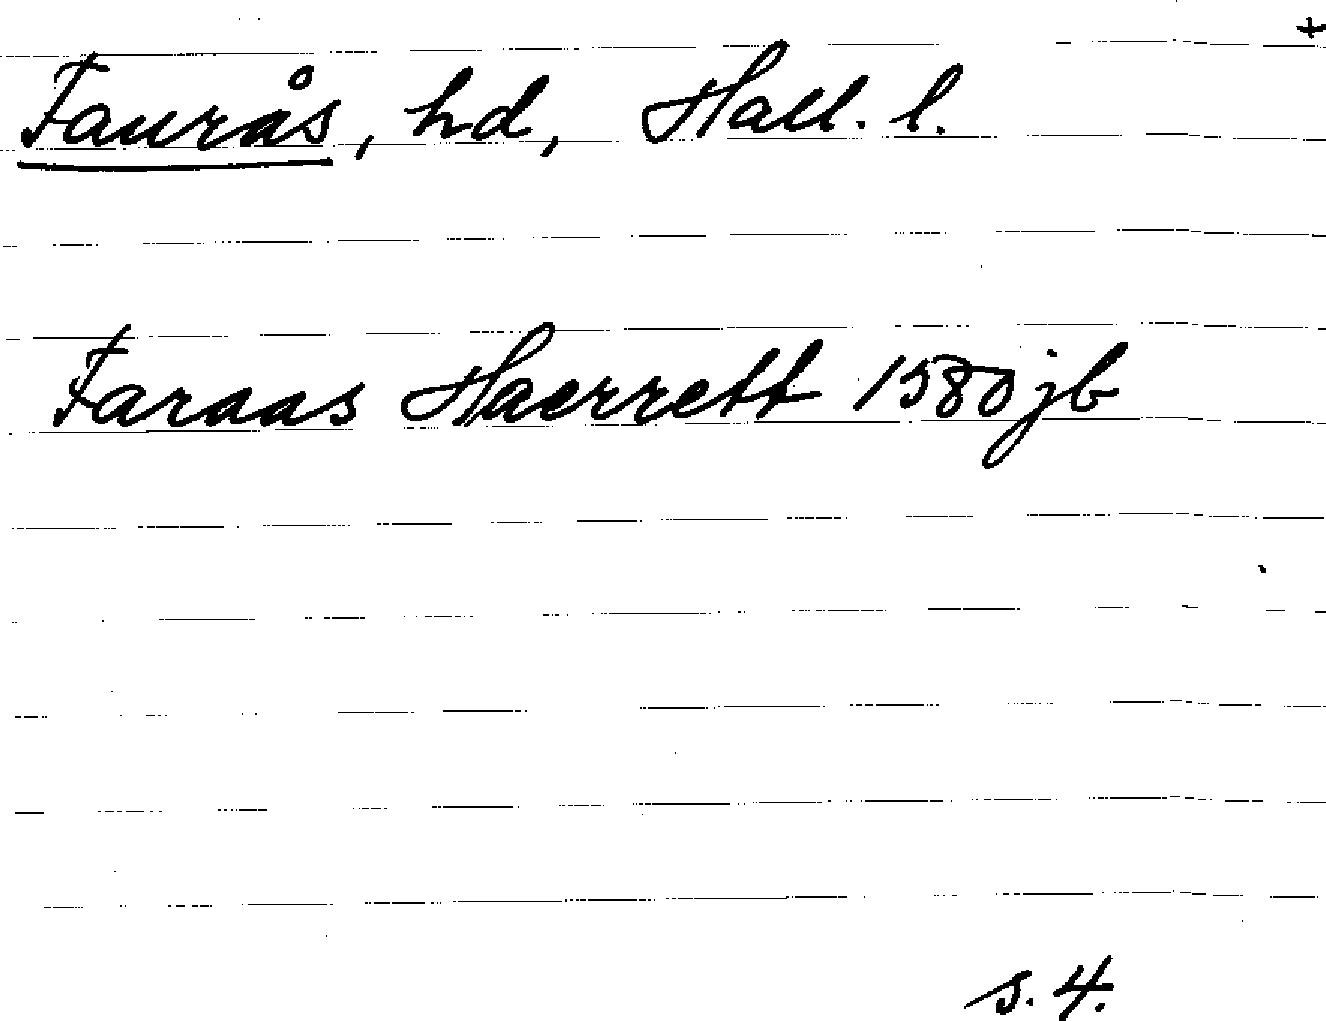 Faurås, hd, Hall. l.
Faraas Haerrett 1580 jb
s. 4.